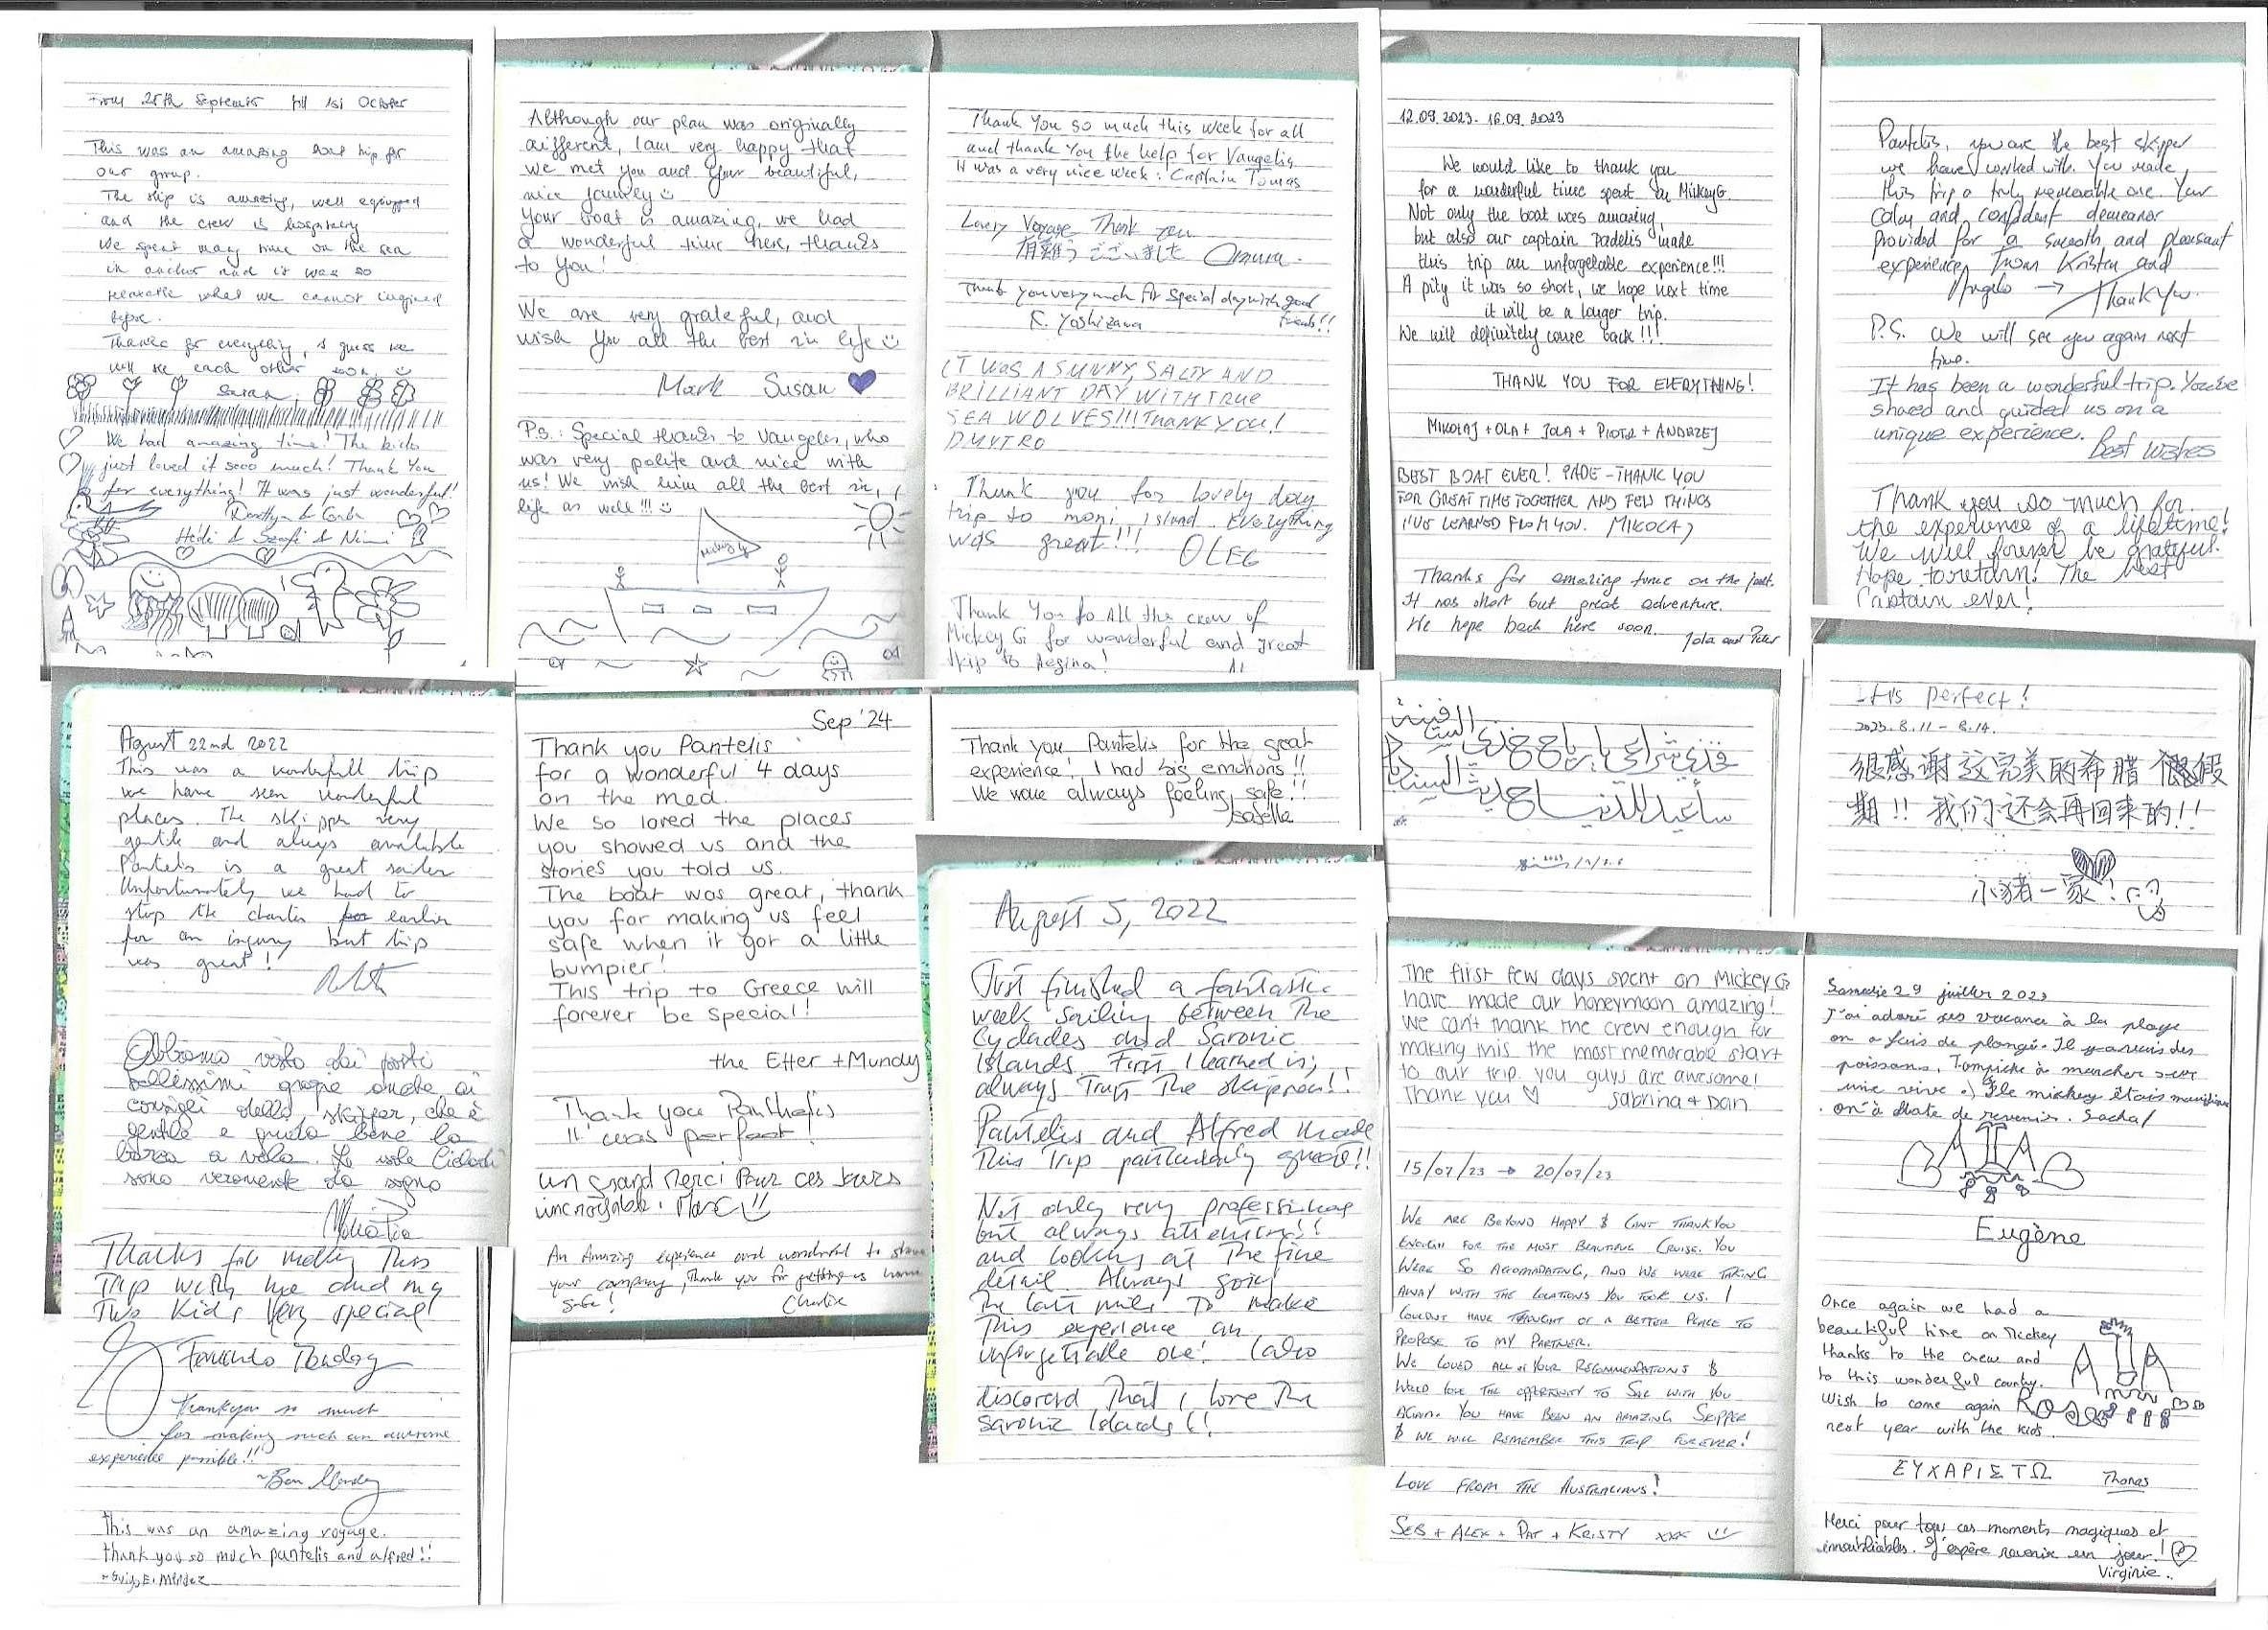 From 25th September till 1st October
This was an amazing boat trip for
our group.
The ship is amazing, well equipped
and the crew is hospitality
We spent may time on the sea
in anchor and it was so
what we cannot imagined
before.
Thanks for everything, I guess we
will see each other soon. :)
Sarah
We had amazing time! The kids
just loved it sooo much! Thank you
for everything! It was just wonderful!
Although our plan was originally
different, I am very happy that
we met you and your beautiful,
nice journey :)
Your boat is amazing, we had
a wonderful time here, thanks
to you!
We are very grateful, and
wish you all the best in life :)
Mark Susan
P.S.: Special thanks to Vangelis, who
was very polite and nice with
us! We wish him all the best in
life as well!!! :)
Mickey G
Thank you so much this week for all
and thank you the help for Vangelis
It was a very nice week: Captain Tomas
Lovely Voyage Thank you
有難うございました Omura.
Thank you very much for special day with good
friends!!
K. Yoshizawa
IT WAS A SUNNY, SALTY AND
BRILLIANT DAY WITH TRUE
SEA WOLVES!!! THANK YOU!
DMYTRO
Thank you for lovely day
trip to moni island. Everything
was great!!! OLEG
Thank You to all the crew of
Mickey G for wonderful and great
trip to Aegina!
12.09.2023 - 16.09.2023
We would like to thank you
for a wonderful time spent on MickeyG.
Not only the boat was amazing,
but also our captain Padelis made
this trip an unforgetable experience!!!
A pity it was so short, we hope next time
it will be a longer trip.
We will definitely come back!!!
THANK YOU FOR EVERYTHING!
MIKOŁAJ + OLA + JOLA + PIOTR + ANDRZEJ
BEST BOAT EVER! PADE - THANK YOU
FOR GREAT TIME TOGETHER AND FEW THINGS
I'VE LEARNED FROM YOU. MIKOŁAJ
Thanks for amazing time on the jacht.
It was short but great adventure.
We hope back here soon.
Jola and Peter
Pantelis, you are the best skipper
we have worked with. You made
this trip a truly memorable one. Your
calm and confident demeanor
provided for a smooth and pleasant
experience, from Kristen and
Angelo → Thank You.
P.S. We will see you again next
time.
It has been a wonderful trip. You've
shared and guided us on a
unique experience.
Best Wishes
Thank you so much for
the experience of a lifetime!
We will forever be grateful.
Hope to return! The best
Captain ever!
August 22nd 2022
This was a wonderfull trip
we have seen wonderful
places. The skipper very
gentle and always available
Pantelis is a great sailer
Unfortunately we had to
stop the charter for earlier
for an injury but trip
was great!
Abbiamo visto dei posti
bellissimi grazie anche ai
consigli dello skipper, che è
gentile e guida bene la
barca a vela. Le isole Cicladi
sono veramente da sogno
Maria Pia
Thanks for making this
trip with me and my
two kids very special!
Thankyou so much
for making such an awesome
experience possible!!
~Ben
This was an amazing voyage.
thank you so much pantelis and alfred!!
Sep '24
Thank you Pantelis
for a wonderful 4 days
on the med.
We so loved the places
you showed us and the
stories you told us.
The boat was great, thank
you for making us feel
safe when it got a little
bumpier!
This trip to Greece will
forever be special!
the Etter + Mundy
Thank you Panthelis
It was perfect!
un grand Merci Pour ces Jours
incroyable. Marc :)
An Amazing experience and wonderful to share
your company, Thank you for getting us home
safe!
Charlie
Thank you Pantelis for the great
experience! I had big emotions!!
We were always feeling safe!!
Isabelle
August 5, 2022
Just finished a fantastic
week sailing between the
Cyclades and Saronic
Islands. First I learned is;
always trust the skipper!!
Pantelis and Alfred made
this trip particularly great!!
Not only very professional
but always attentive!!
and looking at the fine
detail. Always going
the last mile to make
this experience an
unforgettable one! I also
discovered that I love the
Saronic Islands!!
It's perfect!
2023.8.11 - 8.14.
很感谢这完美的希腊假
期!! 我们还会再回来的!!
小猪一家!
The first few days spent on Mickey G
have made our honeymoon amazing!
We can't thank the crew enough for
making this the most memorable start
to our trip. You guys are awesome!
Thank you ♡ Sabrina + Dan
15/07/23 → 20/07/23
WE ARE BEYOND HAPPY & CANT THANK YOU
ENOUGH FOR THE MOST BEAUTIFUL CRUISE. YOU
WERE SO ACCOMADATING, AND WE WERE TAKING
AWAY WITH THE LOCATIONS YOU TOOK US. I
COULDNT HAVE THOUGHT OF A BETTER PLACE TO
PROPOSE TO MY PARTNER.
WE LOVED ALL OF YOUR RECOMMENDATIONS &
WOULD LOVE THE OPPORTUNITY TO SAIL WITH YOU
AGAIN. YOU HAVE BEEN AN AMAZING SKIPPER
& WE WILL REMEMBER THIS TRIP FOREVER!
LOVE FROM THE AUSTRALIANS!
SEB + ALEX + PAT + KRISTY xxx :)
Samedie 29 juillet 2023
J'ai adoré ses vacance à la plage
on a fais de plongé. Il y avais des
poissons.
une vive :) Le mickey étais
on à hate de revenir. Sacha
Eugène
Once again we had a
beautiful time on Mickey
thanks to the crew and
to this wonderful country.
Wish to come again
next year with the kids.
ΕΥΧΑΡΙΣΤΩ Thomas
Merci pour tous ces moments magiques et
inoubliables. J'espère revenir un jour! ♡
Virginie..